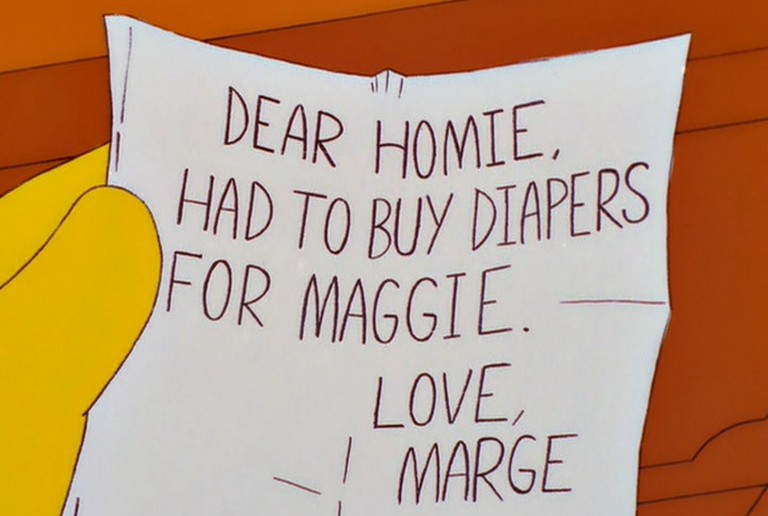 DEAR HOMIE,
HAD TO BUY DIAPERS
FOR MAGGIE.
LOVE,
MARGE